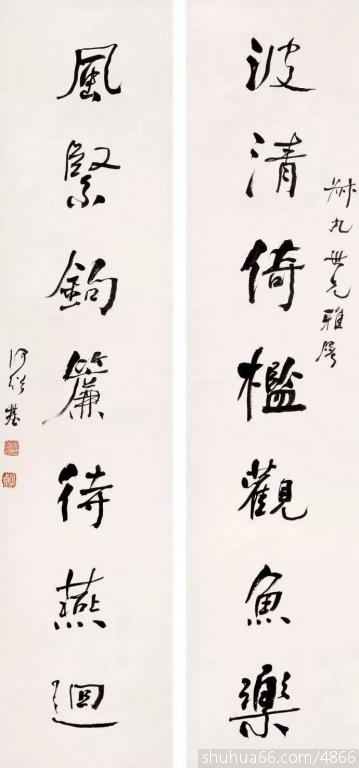 九世兄雅屬
波清倚檻觀魚樂
風緊鉤簾待燕迴
何紹基
shuhua66.com/4866